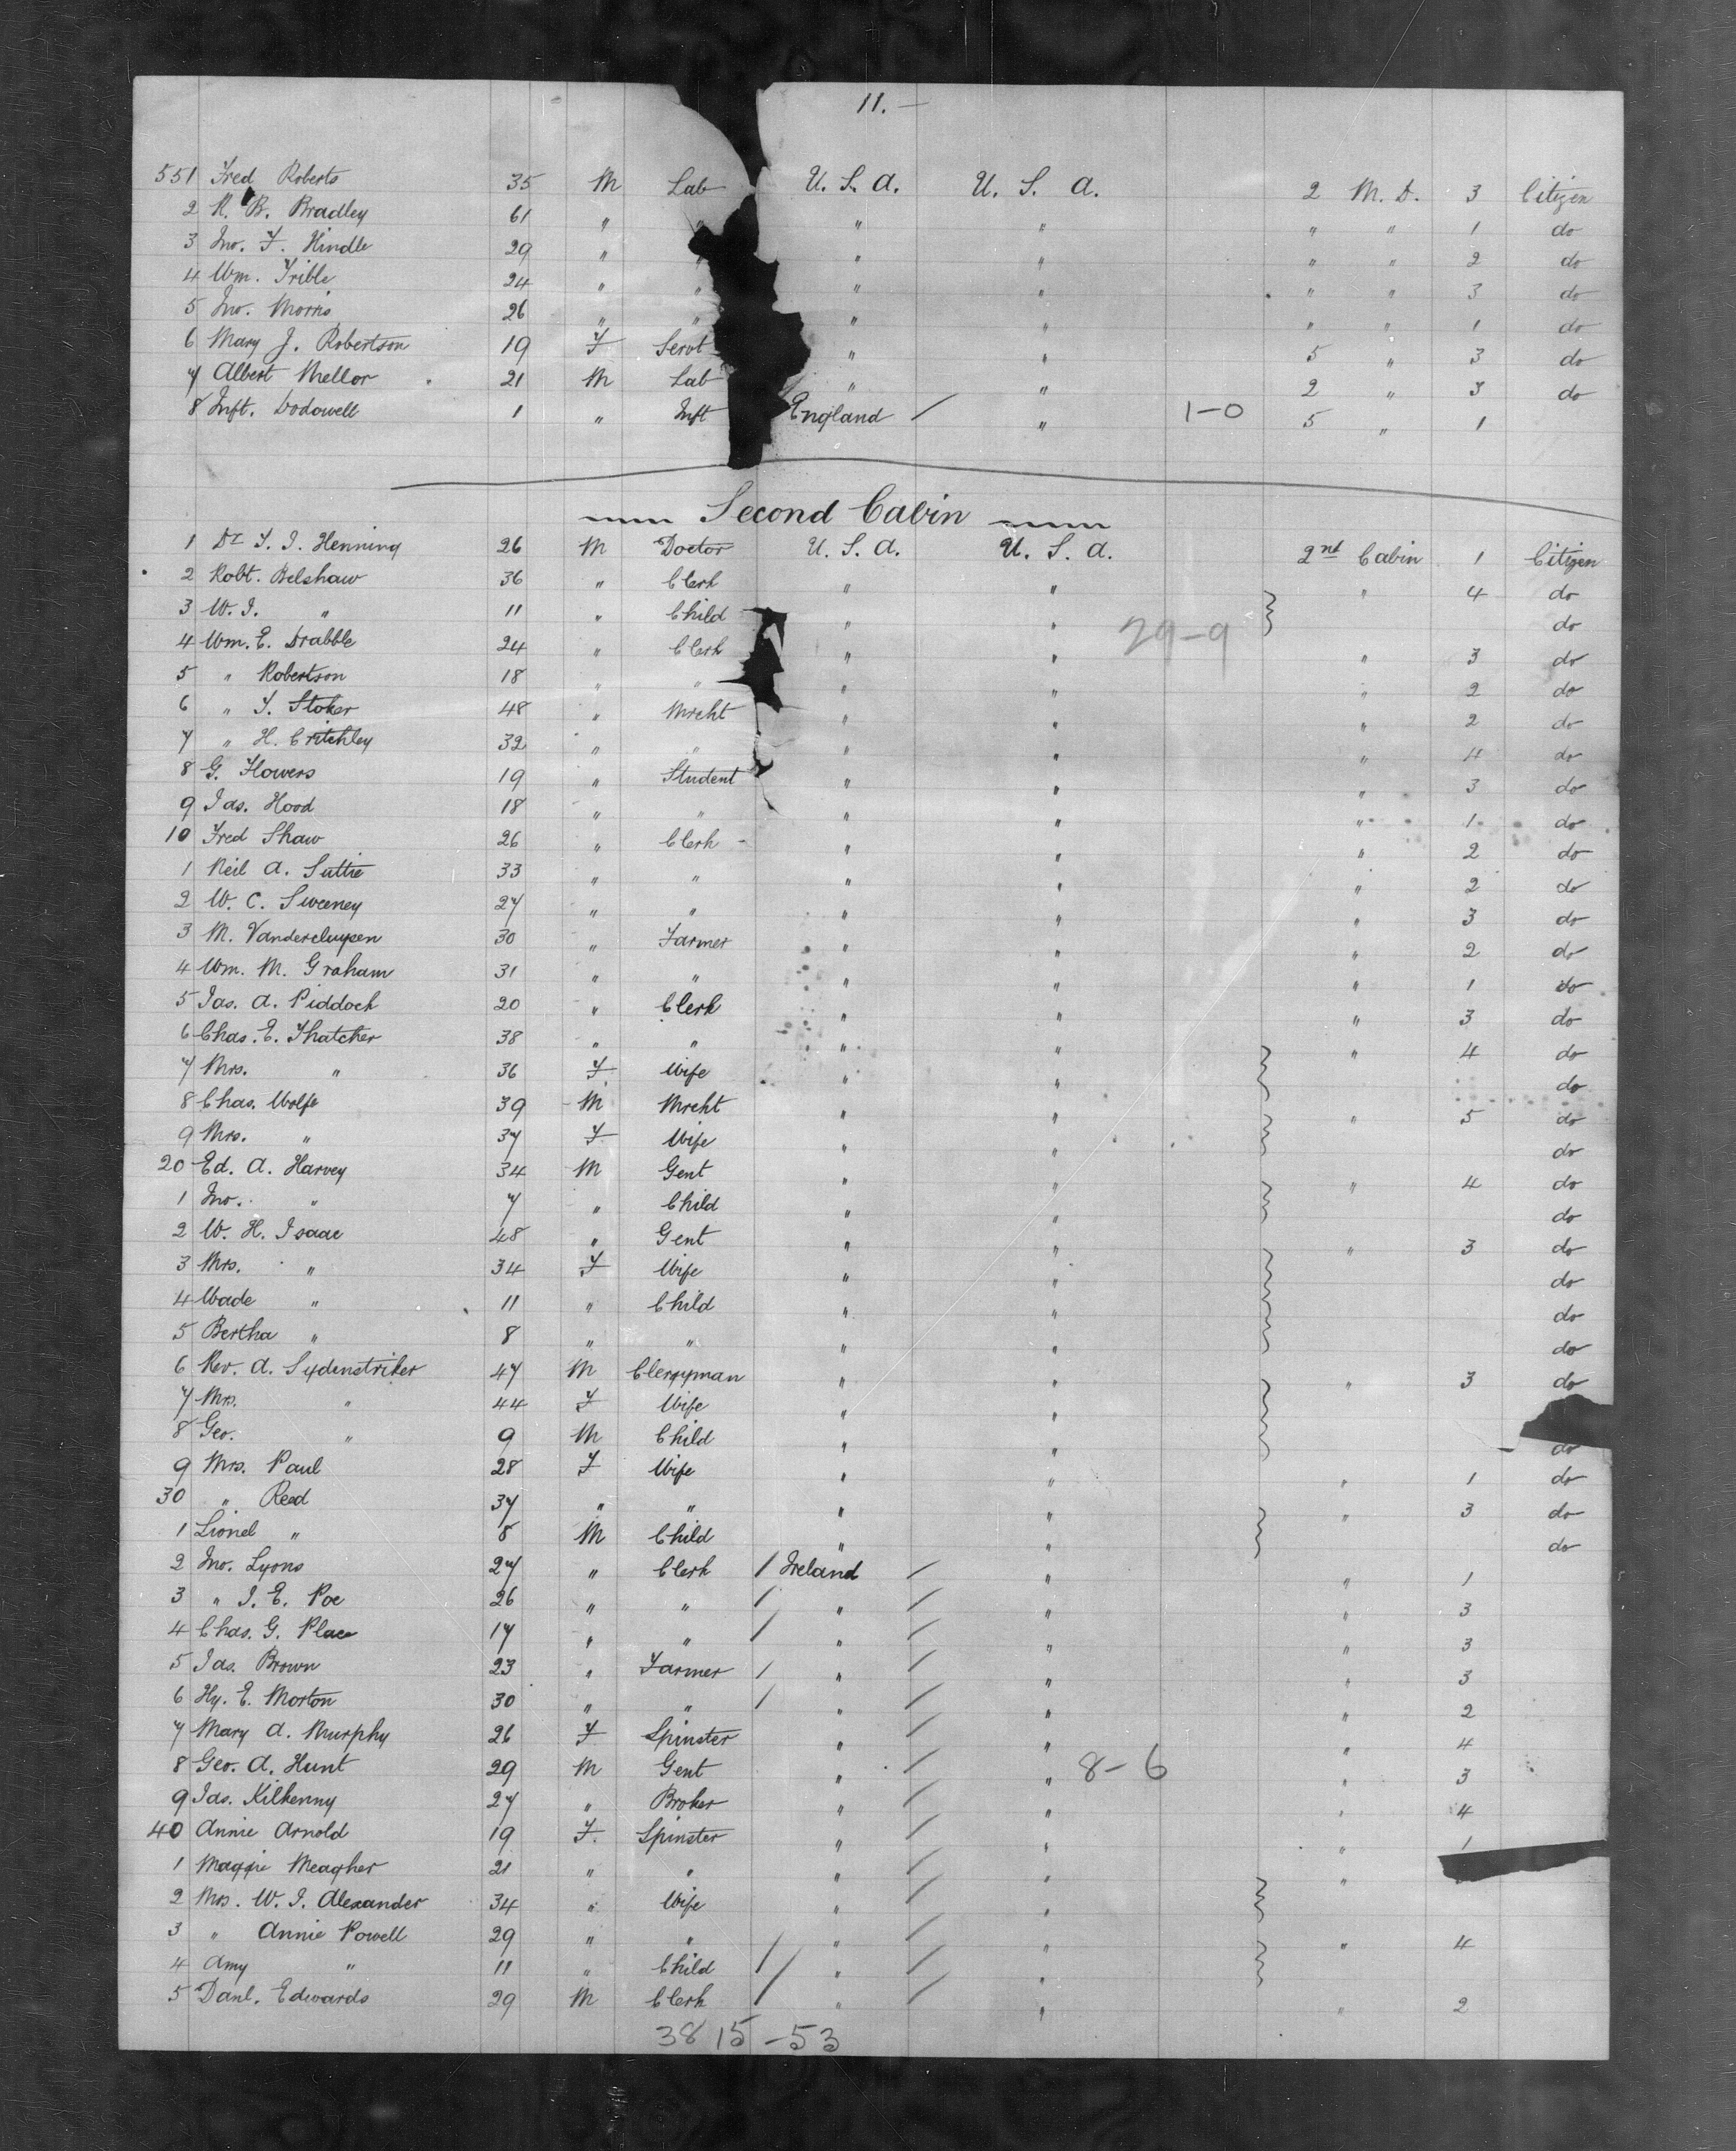 11.—
551 Fred Roberts 35 M Lab U. S. A. U. S. A. 2 M. D. 3 Citizen
2 R. B. Bradley 61 " " " " " " 1 do
3 Jno. F. Hindle 29 " " " " " 2 do
4 Wm. Trible 24 " " " " " " 3 do
5 Jno. Morris 26 " " " " " " 1 do
6 Mary J. Robertson 19 F Servt " " 5 " 3 do
7 Albert Mellor 21 M Lab " " 2 " 3 do
8 Inft. Dodowell 1 " Inft England / " 1-0 5 " 1
Second Cabin
1 Dr T. J. Henning 26 M Doctor U. S. A. U. S. A. 2nd Cabin 1 Citizen
2 Robt. Belshaw 36 " Clerk " " " 4 do
3 W. J. " 11 " Child " " do
29-9
4 Wm. E. Drabble 24 " Clerk " " " 3 do
5 " Robertson 18 " " " " " 2 do
6 " T. Stoker 48 " Mrcht " " " 2 do
7 " H. Critchley 32 " " " " " 4 do
8 G. Flowers 19 " Student " " " 3 do
9 Jas. Hood 18 " " " " " 1 do
10 Fred Shaw 26 " Clerk " " " 2 do
1 Neil A. Suttie 33 " " " " " 2 do
2 W. C. Sweeney 27 " " " " " 3 do
3 M. Vandercluysen 30 " Farmer " " " 2 do
4 Wm. M. Graham 31 " " " " " 1 do
5 Jas. A. Piddock 20 " Clerk " " " 3 do
6 Chas. E. Thatcher 38 " " " " " 4 do
7 Mrs. " 36 F Wife " " do
8 Chas. Wolfe 39 M Mrcht " " " 5 do
9 Mrs. " 37 F Wife " " do
20 Ed. A. Harvey 34 M Gent " " " 4 do
1 Jno. " 7 " Child " " do
2 W. H. Isaac 48 " Gent " " " 3 do
3 Mrs. " 34 F Wife " " do
4 Wade " 11 " Child " " do
5 Bertha " 8 " " " " do
6 Rev. A. Sydenstriker 47 M Clergyman " " " 3 do
7 Mrs. " 44 F Wife " "
8 Geo. " 9 M Child " " do
9 Mrs. Paul 28 F Wife " " " 1 do
30 " Reed 37 " " " " " 3 do
1 Lionel " 8 M Child " " do
2 Jno. Lyons 27 " Clerk / Ireland / " " 1
3 " J. E. Poe 26 " " / " / " " 3
4 Chas. G. Place 17 " " / " / " " 3
5 Jas. Brown 23 " Farmer / " / " " 3
6 Hy. E. Morton 30 " " / " / " " 2
7 Mary A. Murphy 26 F Spinster " / " " 4
8 Geo. A. Hunt 29 M Gent " / " 8-6 " 3
9 Jas. Kilkenny 27 " Broker " / " " 4
40 Annie Arnold 19 F. Spinster " / " " 1
1 Maggie Meagher 21 " " " / " "
2 Mrs. W. J. Alexander 34 " Wife " / "
3 " Annie Powell 29 " " " / " " 4
4 Amy " 11 " Child / " / "
5 Danl. Edwards 29 M Clerk / " / " " 2
38 15 -53